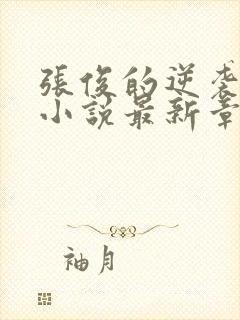 張俊的逆袭
小説最新章
袖月